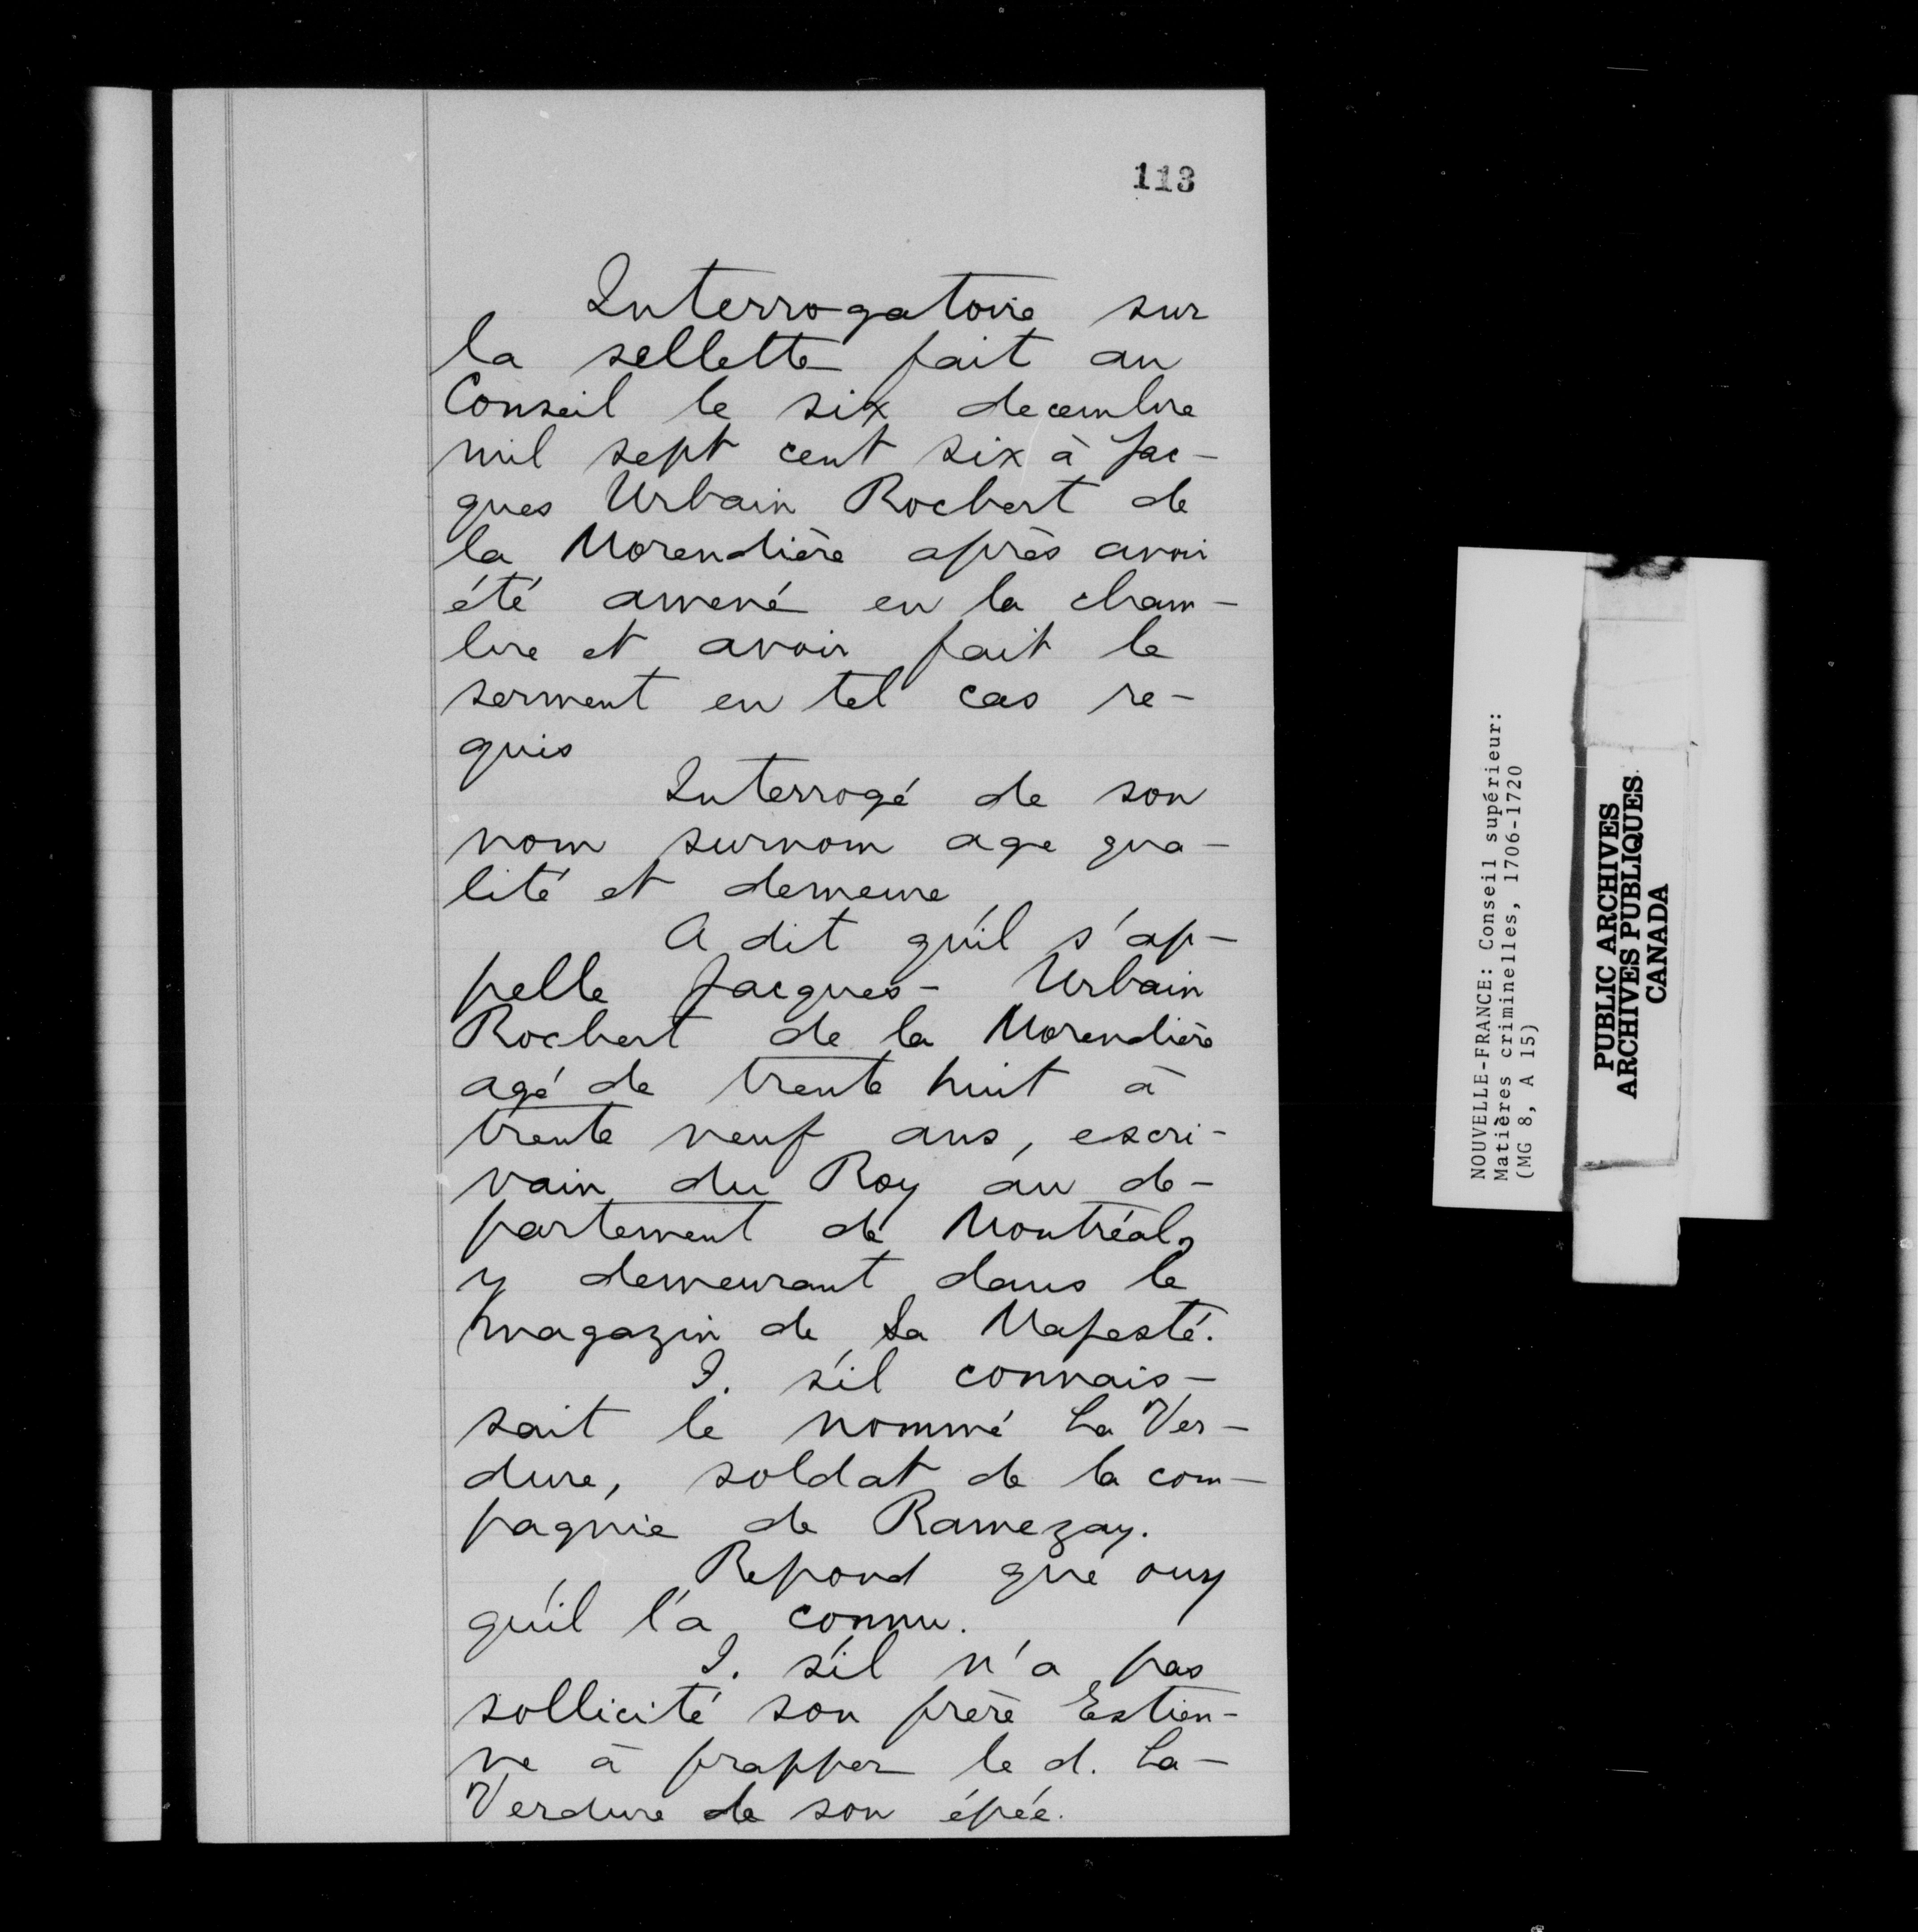 113
Interrogatoire sur
la sellette fait au
Conseil le six decembre
mil sept cent six à Jac-
ques Urbain Rocbert de
la Morendière après avoir
été amené en la cham-
bre et avoir fait le
serment en tel cas re-
quis
Interrogé de son
nom surnom age qua-
lité et demeure
A dit qu'il s'ap-
pelle Jacques-Urbain
Rocbert de la Morendière
agé de trente huit à
trente neuf ans, escri-
vain du Roy au de-
partement de Montréal,
y demeurant dans le
magazin de Sa Majesté.
I. s'il connais-
sait le nommé La Ver-
dure, soldat de la com-
pagnie de Ramezay.
Repond que ouy
qu'il l'a connu.
I. s'il n'a pas
sollicité son frère Estien-
ne à frapper le d. La-
Verdure de son épée.
NOUVELLE-FRANCE: Conseil supérieur:
Matières criminelles, 1706-1720
(MG 8, A 15)
PUBLIC ARCHIVES
ARCHIVES PUBLIQUES
CANADA